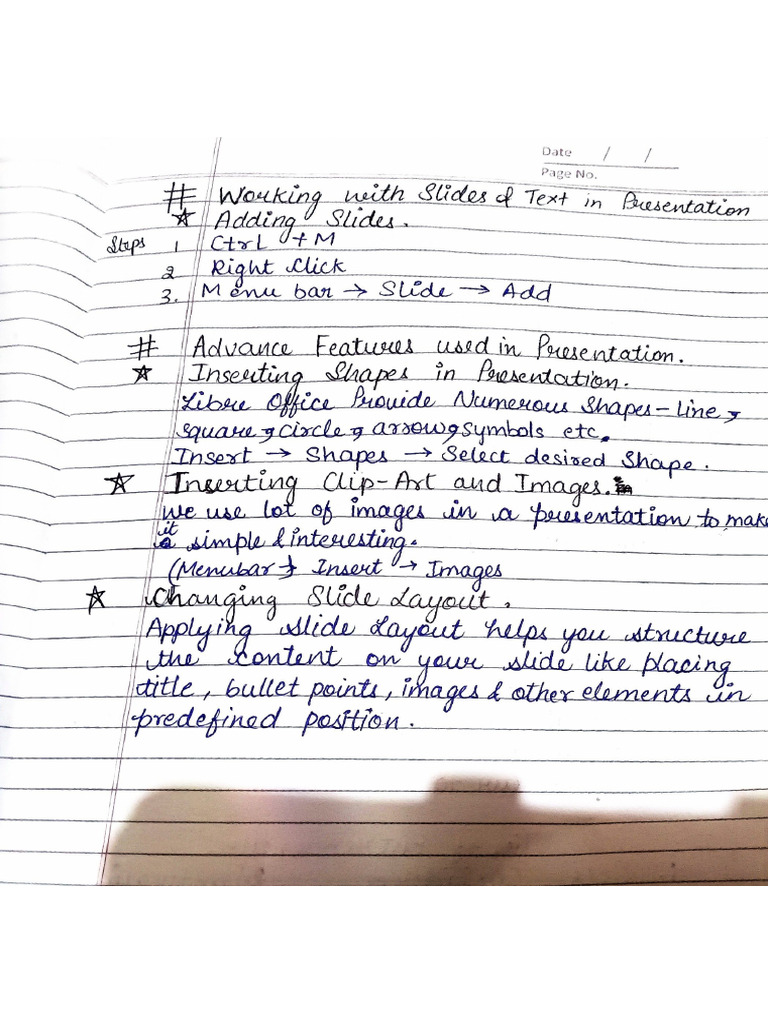 Date / /
Page No.
# Working with Slides & Text in Presentation
☆ Adding Slides.
Steps 1 Ctrl + M
2 Right Click
3. Menu bar → Slide → Add
# Advance Features used in Presentation.
☆ Inserting Shapes in Presentation.
Libre Office Provide Numerous Shapes - Line,
square, circle, arrow, symbols etc.
Insert → Shapes → Select desired Shape.
☆ Inserting Clip-Art and Images.
We use lot of images in a presentation to make
it simple & interesting.
(Menubar → Insert → Images
☆ Changing Slide Layout.
Applying slide Layout helps you structure
the content on your slide like placing
title, bullet points, images & other elements in
predefined position.